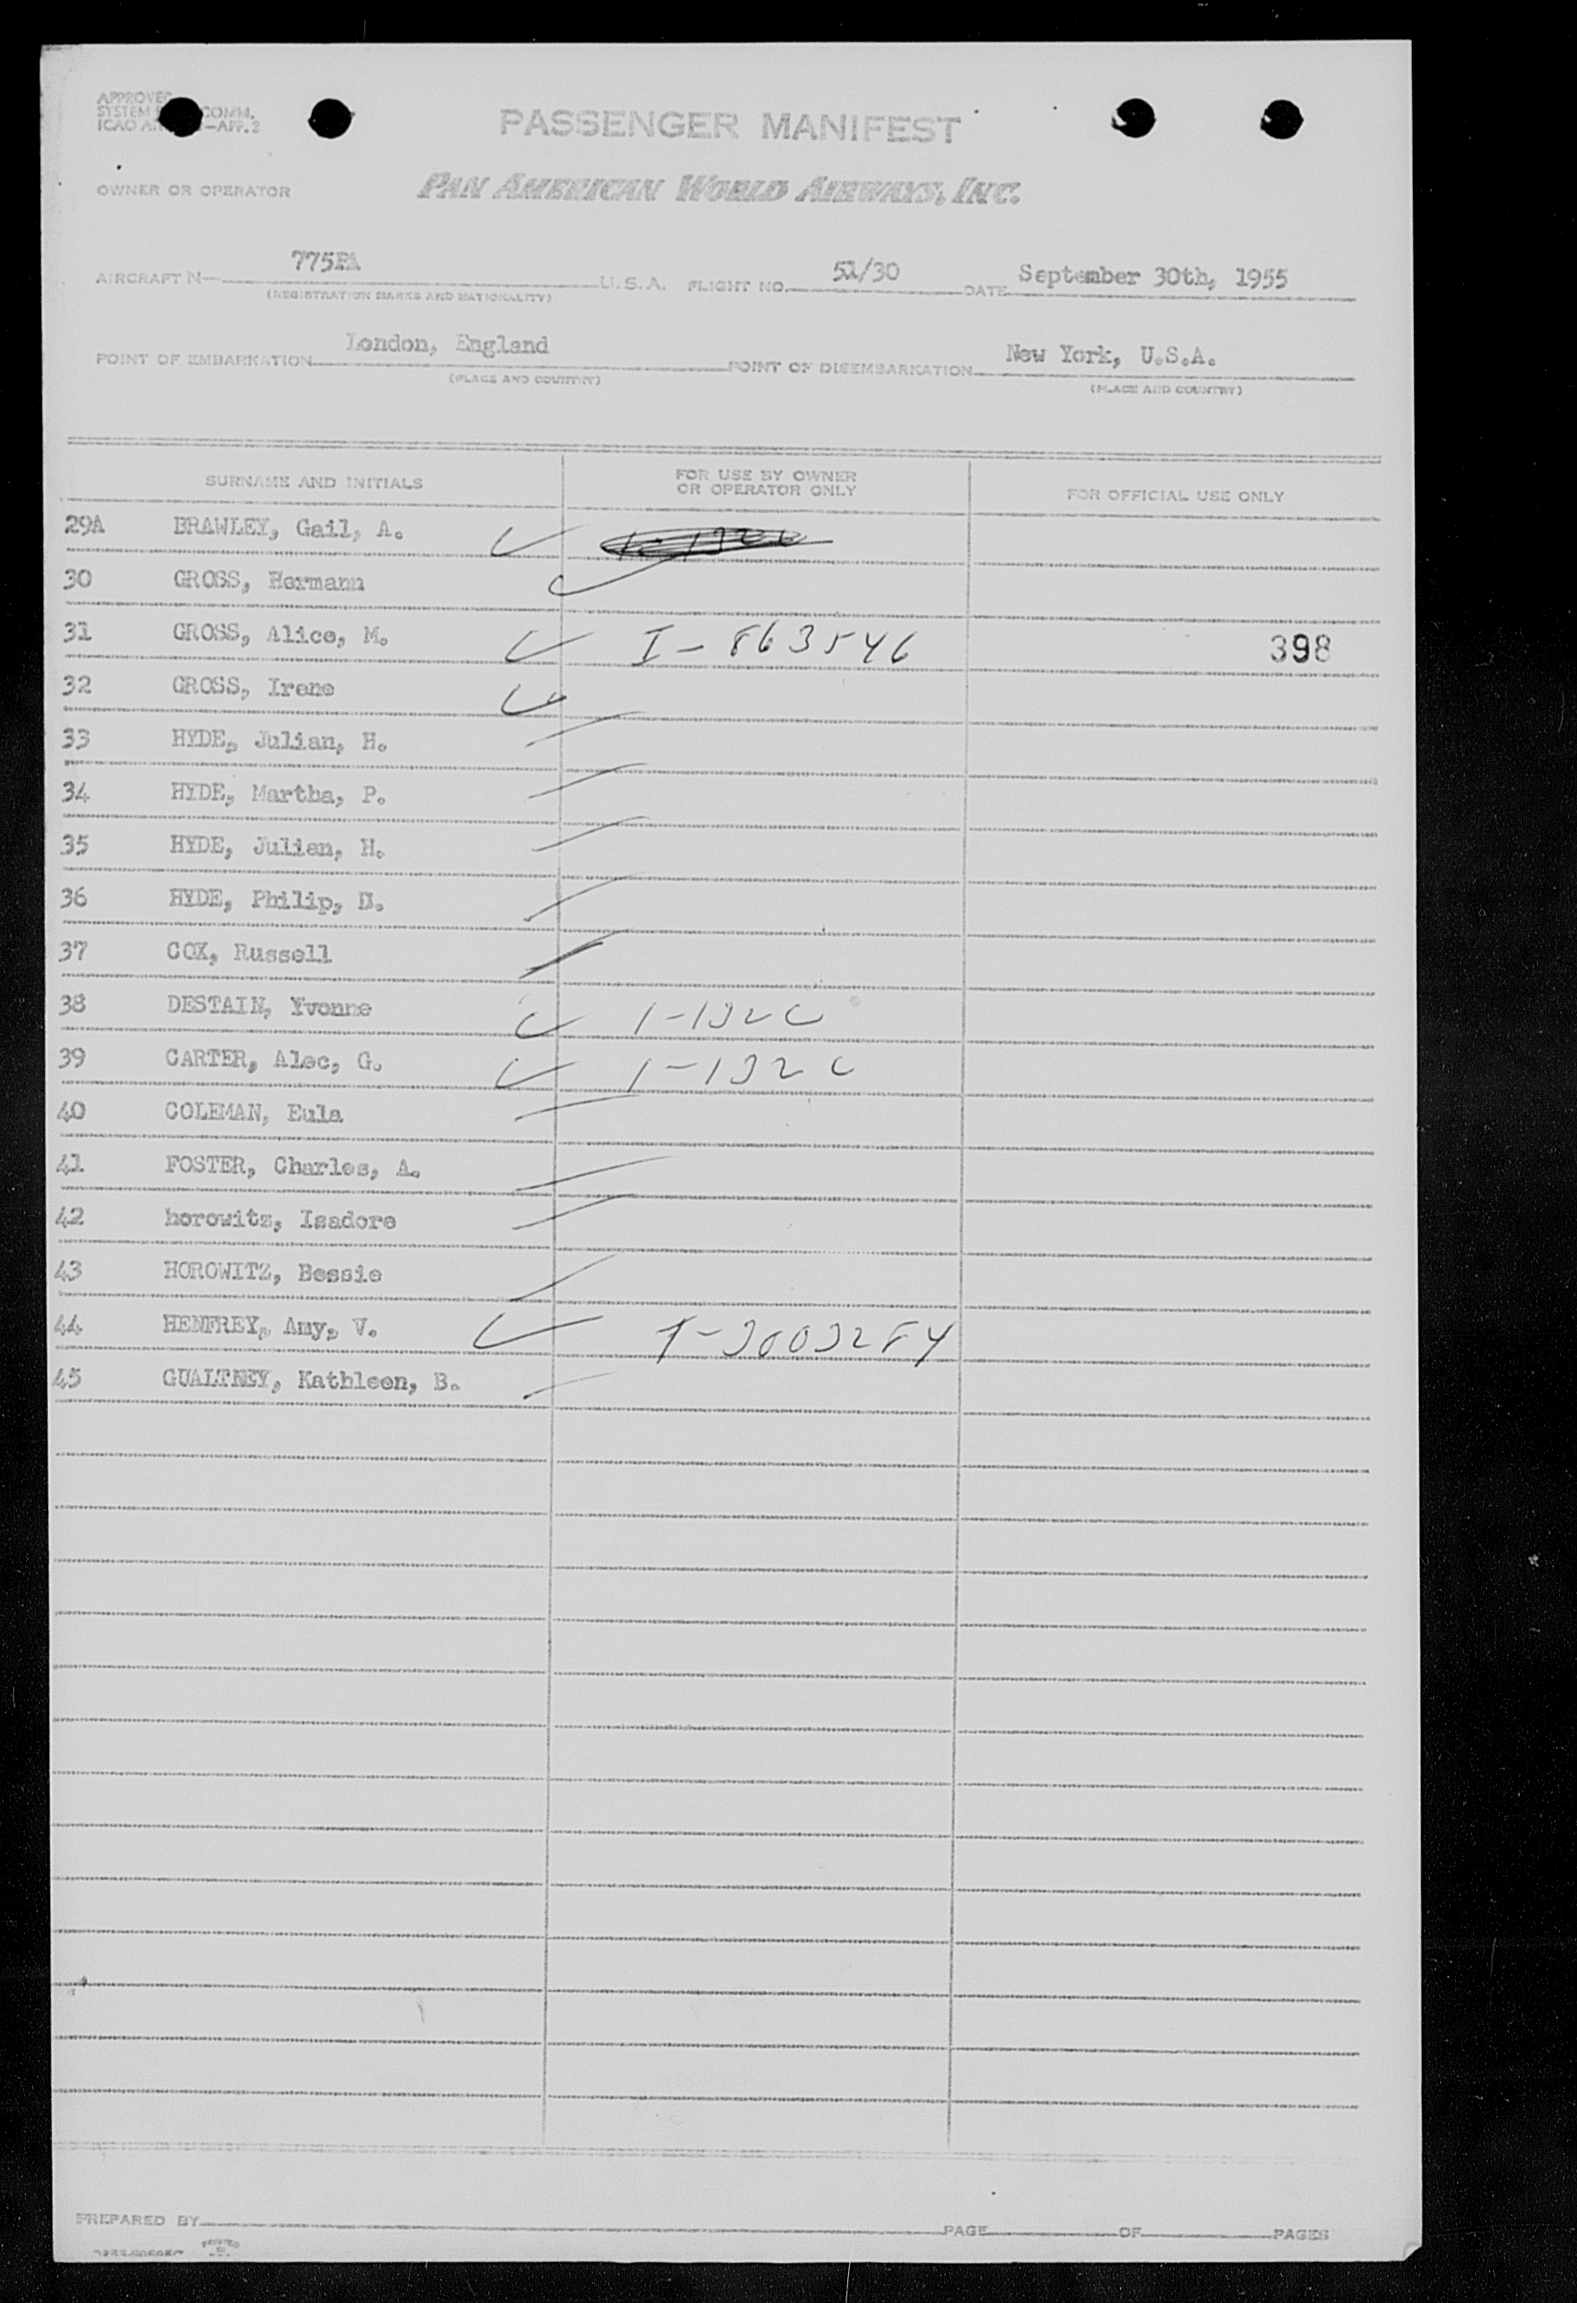 APPROVED
SYSTEM COMM.
ICAO —APP.2
PASSENGER MANIFEST
OWNER OR OPERATOR PAN AMERICAN WORLD AIRWAYS, INC.
AIRCRAFT N— 775PA U.S.A. FLIGHT NO. 51/30 DATE September 30th, 1955
(REGISTRATION MARKS AND NATIONALITY)
POINT OF EMBARKATION London, England POINT OF DISEMBARKATION New York, U.S.A.
(PLACE AND COUNTRY) (PLACE AND COUNTRY)
SURNAME AND INITIALS FOR USE BY OWNER OR OPERATOR ONLY FOR OFFICIAL USE ONLY
29A BRAWLEY, Gail, A.
30 GROSS, Hermann
31 GROSS, Alice, M. I-863546 398
32 GROSS, Irene
33 HYDE, Julian, H.
34 HYDE, Martha, P.
35 HYDE, Julien, H.
36 HYDE, Philip, D.
37 COX, Russell
38 DESTAIN, Yvonne 1-192C
39 CARTER, Alec, G. 1-192C
40 COLEMAN, Eula
41 FOSTER, Charles, A.
42 horowitz, Isadore
43 HOROWITZ, Bessie
44 HENFREY, Amy, V.
45 GUALTNEY, Kathleen, B.
PREPARED BY PAGE OF PAGES
PRINTED